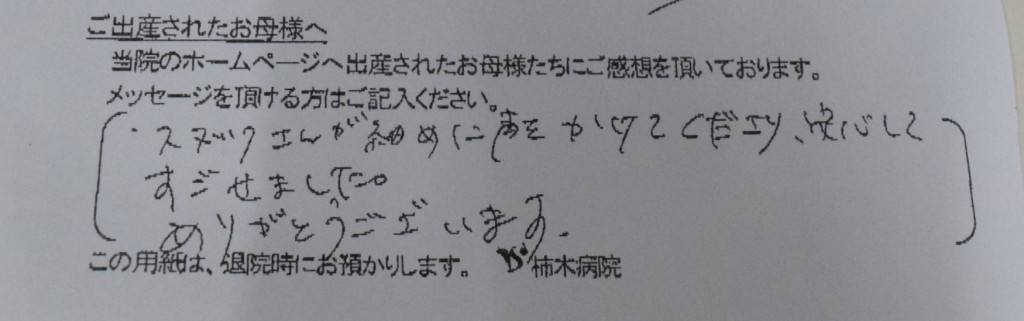 ご出産されたお母様へ
当院のホームページへ出産されたお母様たちにご感想を頂いております。
メッセージを頂ける方はご記入ください。
・スタッフさんが細めに声をかけてくださり、安心して
すごせました。
ありがとうございます。
この用紙は、退院時にお預かりします。 柿木病院